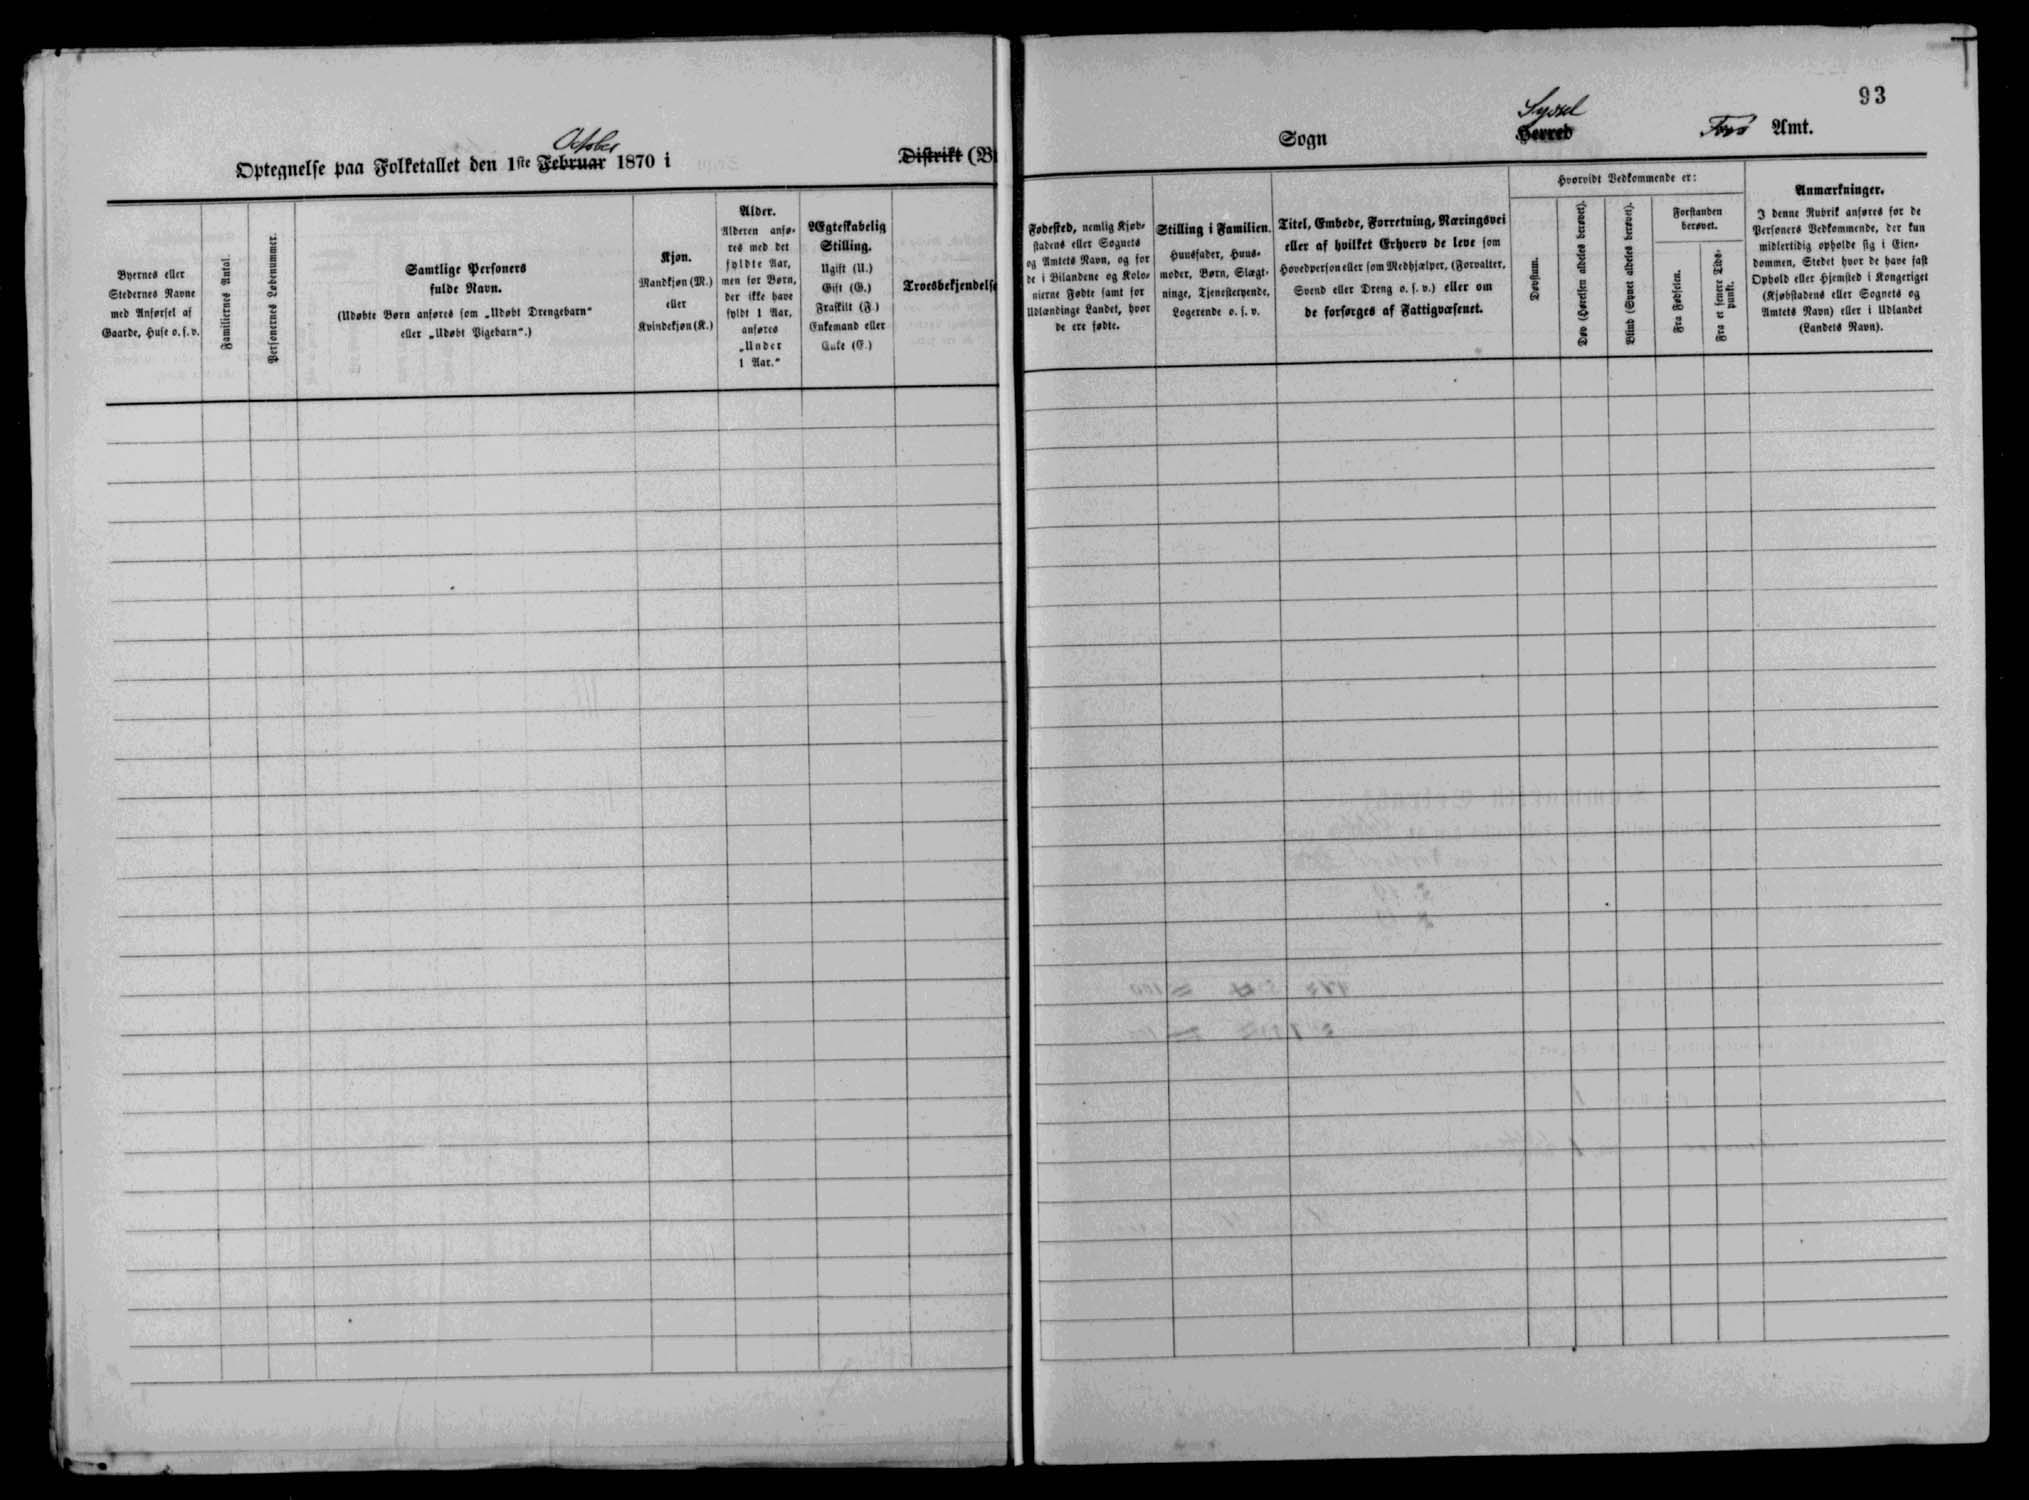 93
October
Optegnelse paa Folketallet den 1ste Februar 1870 i
Distrikt (B
Sogn
Syssel
Herred
Amt.
Byernes eller
Stedernes Navne
med Anførsel af
Gaarde, Huse o. s. v.
Familiernes Antal.
Personernes Løbenummer.
Samtlige Personers
fulde Navn.
(Udøbte Børn anføres som „Udøbt Drengebarn“
eller „Udøbt Pigebarn“.)
Kjøn.
Mandkjøn (M.)
eller
Kvindekjøn (K.)
Alder.
Alderen anfø-
res med det
fyldte Aar,
men for Børn,
der ikke have
fyldt 1 Aar,
anføres
„Under
1 Aar.“
Ægteskabelig
Stilling.
Ugift (U.)
Gift (G.)
Fraskilt (F.)
Enkemand eller
Enke (E.)
Troesbekjendelse
Fødested, nemlig Kjøb-
stadens eller Sognets
og Amtets Navn, og for
de i Bilandene og Kolo-
nierne Fødte samt for
Udlændinge Landet, hvor
de ere fødte.
Stilling i Familien.
Huusfader, Huus-
moder, Børn, Slægt-
ninge, Tjenestetyende,
Logerende o. s. v.
Titel, Embede, Forretning, Næringsvei
eller af hvilket Erhverv de leve som
Hovedperson eller som Medhjælper, (Forvalter,
Svend eller Dreng o. s. v.) eller om
de forsørges af Fattigvæsenet.
Hvorvidt Vedkommende er:
Døvstum.
Døv (Hørelsen aldeles berøvet).
Blind (Synet aldeles berøvet).
Forstanden
berøvet.
Fra Fødselen.
Fra et senere Tids-
punkt.
Anmærkninger.
I denne Rubrik anføres for de
Personers Vedkommende, der kun
midlertidig opholde sig i Eien-
dommen, Stedet hvor de have fast
Ophold eller Hjemsted i Kongeriget
(Kjøbstadens eller Sognets og
Amtets Navn) eller i Udlandet
(Landets Navn).